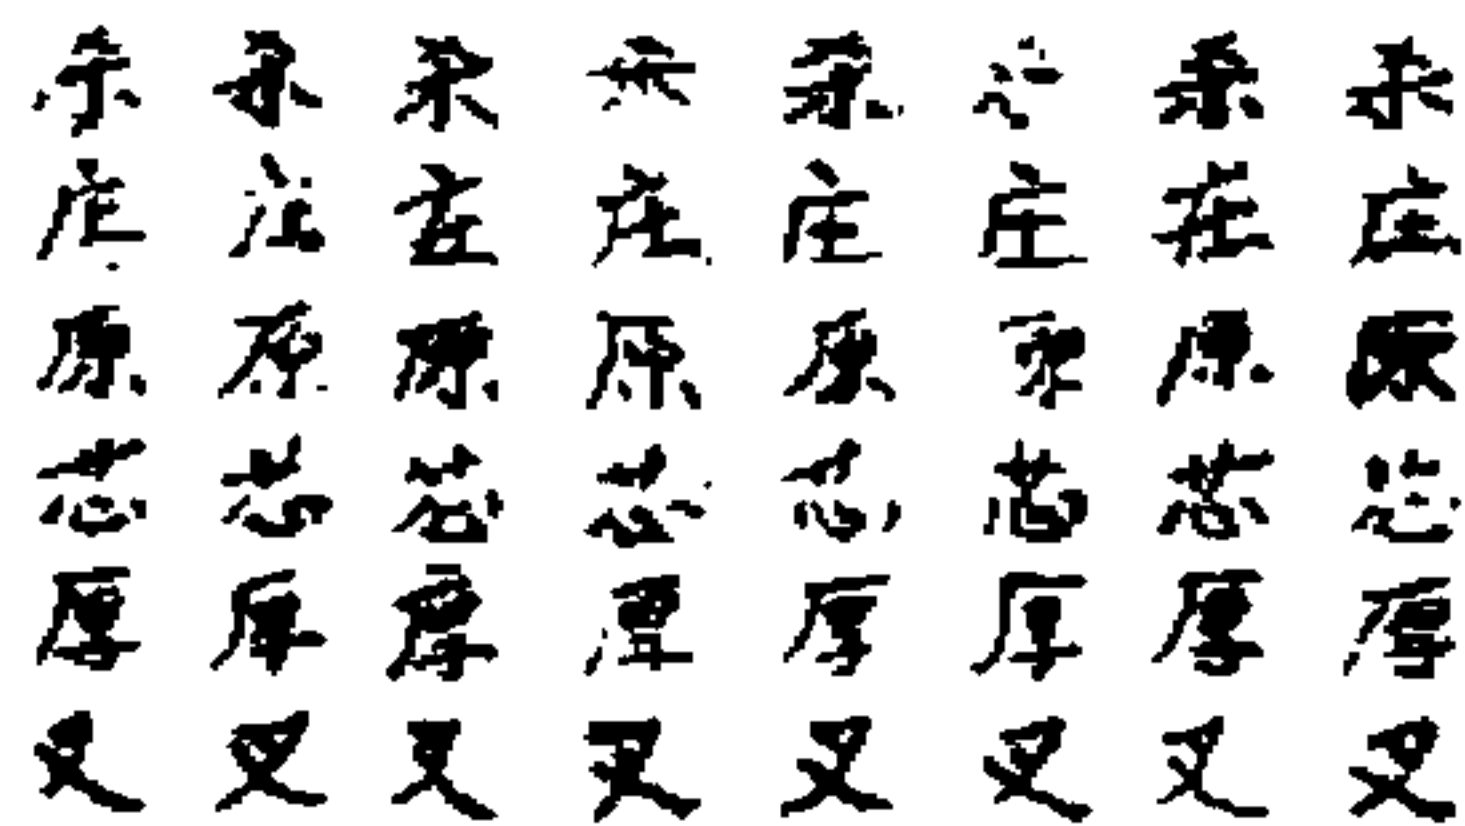 庄 庄 庄 庄 庄 庄 庄 庄
原 原 原 原 原 原 原 原
芯 芯 芯 芯 芯 芯 芯 芯
厚 厚 厚 厚 厚 厚 厚 厚
叉 叉 叉 叉 叉 叉 叉 叉